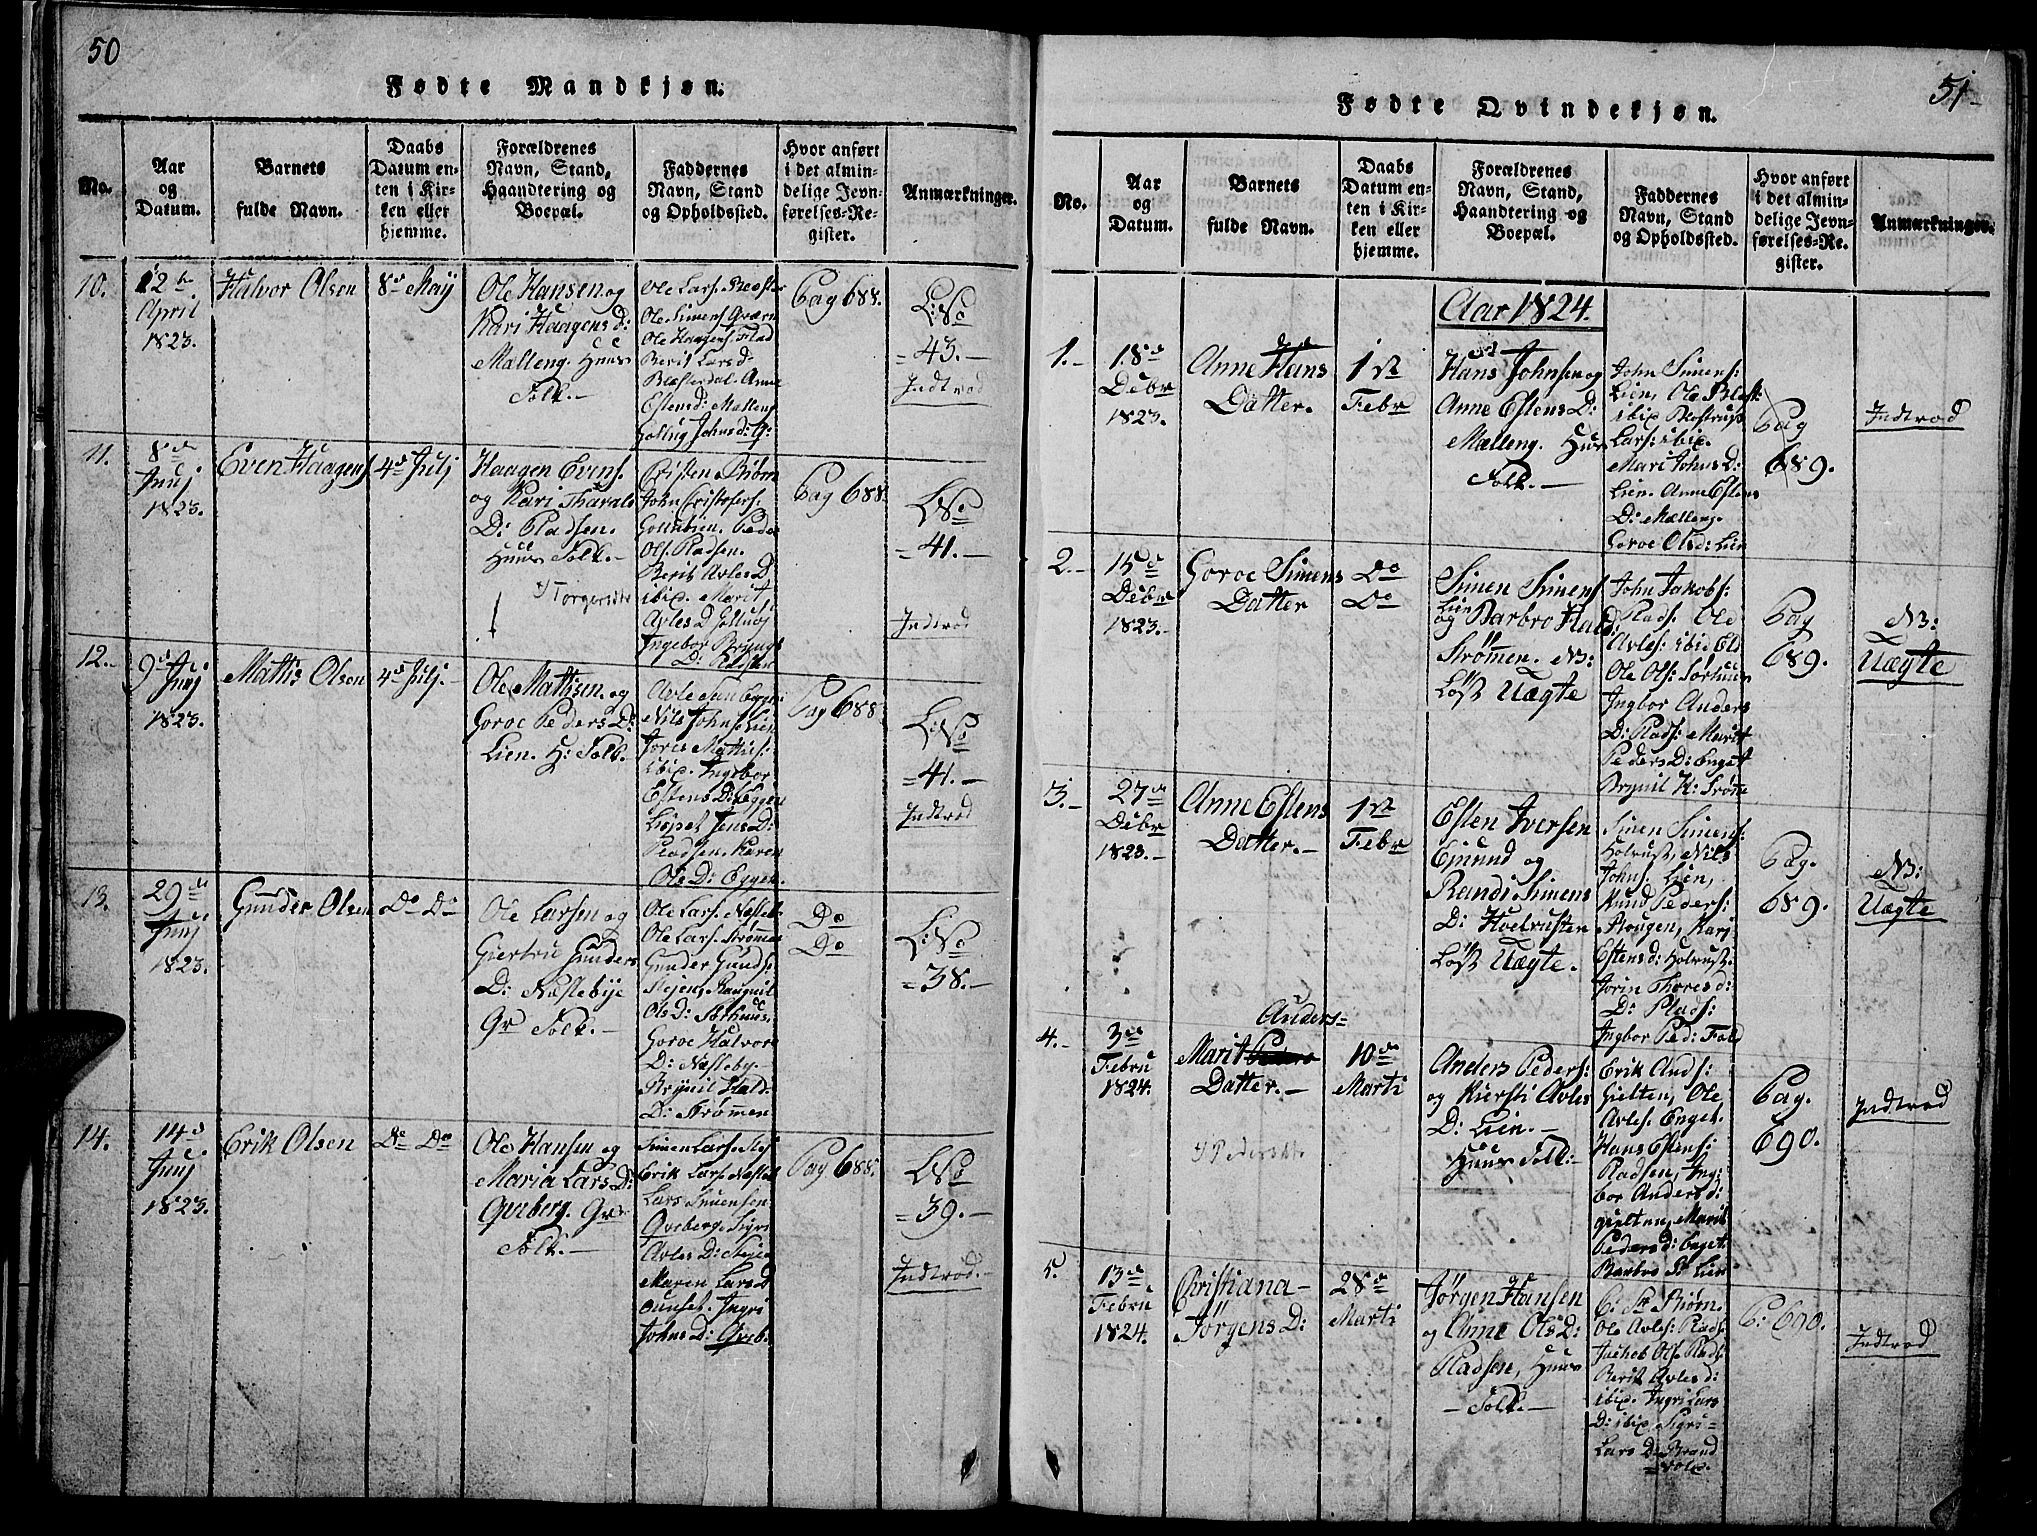 50
Fødte Mandkjøn.
No.
Aar
og
Datum.
Barnets
fulde Navn.
Daabs
Datum en-
ten i Kir-
ken eller
hjemme.
Forældrenes
Navn, Stand,
Haandtering og
Boepæl.
Faddernes
Navn, Stand
og Opholdssted.
Hvor anført
i det almin-
delige Jevn-
førelses-Re-
gister.
Anmærkninger.
10.
12
April
1823.
Halvor Olsen
8de May
Ole Hansen og
Kari Haagens D:
Mælleng. Huus
Folk.-
Ole Lars.
Ole Simens
Ole Haagens.
Berit Lars D
Anne
Estens D: Mælleng
Johns D:
Pag 688.
L:No
= 43. -
Indtrod
11.
8de
Junij
1823.
Even Haagens.
4de Julj
Haagen Evens.
og Kari Tharalds
D: Pladsen.
Huus Folk.-
Torgersdtr
Cristen Biørn
John Cristofers.
Peder
Ols. Pladsen.
Berit Avles D
ibid. Marit
Avles D
Ingebor
Pag 688.
LNo
= 41. -
Indtrod
12.-
9de
Junij
1823.
Mattis Olsen
4de Julj. -
Ole Mattisen og
Goroe Peders D:
Lien. H: Folk.
Avle
Nils Johns. Lien
Mattis:
ibid. Ingebor
Estens D: Eggen
Lispet Jens D:
Pladsen. Karen
Ole D: Eggen.
Pag 688
L:No
= 41. -
Indtrod
13.
29de
Junij
1823.
Gunder Olsen
Do Do
Ole Larsen og
Giertru Gunders
D: Næstebye
Gr Folk. -
Ole Lars.
Ole Lars. Strømmen
Gunder Gunds.
Ols D:
Goroe Halvors
D: Næsteby.
Brynil Hald.
D: Strømen
Do
Do
L:No
= 38. -
14.
14de
Junij
1823.
Erik Olsen
Do Do
Ole Hansen og
Maria Lars D:
Qveberg. Gr
Folk. -
Simen Lars.
Erik Lars.
Lars Simensen
Qveberg. Sigri
Avles D:
Maren Lars D
Ingri
Johns D: Qveb.
Pag 688.
LNo
= 39. -
Indtrod. -
51-
Fødte Qvindekjøn.
No.
Aar
og
Datum.
Barnets
fulde Navn.
Daabs
Datum en-
ten i Kir-
ken eller
hjemme.
Forældrenes
Navn, Stand,
Haandtering og
Boepæl.
Faddernes
Navn, Stand
og Opholdssted.
Hvor anført
i det almin-
delige Jevn-
førelses-Re-
gister.
Anmærkninger.
Aar 1824.
1. -
18de
Debr
1823.
Anne Hans
Datter.
1st
Febr
Hans Johnsen og
Anne Estens D:
Mælleng. Huus
Folk. -
John Simens:
Lien, Ole
ibid
Lars: ibid.
Mari Johns D:
Lien. Anne Estens
D: Mælleng.
Goroe Ols D: Lien
Pag
689.
Indtrod
2. -
15de
Debr
1823. -
Goroe Simens
Datter
Do
Do
Simen Simens
Lien
og Barbro Hald
D:
Strømen. NB:
Løst Uægte
John Jakobs:
Plads. Ole
Avles: ibid
Ole Ols:
Ingbor Anders
D: Plads: Marit
Peders D: Enget
Brynil H: Strøm
Pag
689.
NB:
Uægte
3. -
27de
Debr
1823. -
Anne Estens
Datter. -
1st
Febr
Esten Iversen
Ejmund og
Randi Simens
D: Hvelrusten
Løst Uægte.
Simen Simens:
Nils
Johns. Lien,
Knud Peders:
Kari
Estens D:
Jorin Thores D:
D: Plads:
Ingbor Ped:
Pag.
689.
NB:
Uægte
4. -
3de
Febru
1824.
Anders=
Marit
Datter. -
Pedersdt.
10de
Marti
Anders Peders:
og Kiersti Avles
D: Lien. -
Huus Folk: -
Erik Ands:
Gielten, Ole
Avles. Enget.
Hans Estens:
Pladsen, Ing
bor Anders D:
gielten, Marit
Peders D: Enget.
Barbro
Lien
Pag.
690.
Indtrod
5.
13de
Febru
1824.
Cristiana-
Jørgens D:
28de
Marti
Jørgen Hansen
og Anne Ols D:
Pladsen, Huus
- Folk. -
Biørn.
Ole Avles: Plads.
Jachob Ols. Plads.
Berit Avles D:
ibid. Ingri Lars
D: ibid Sigri=
Lars D: Brand
P: 690.
Indtrod